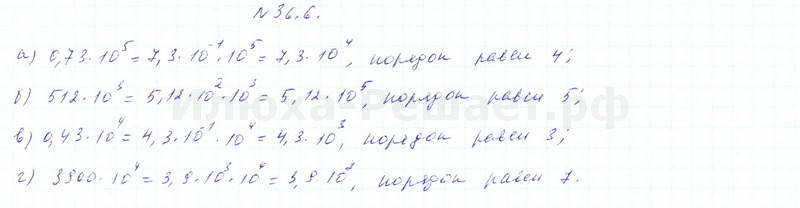 №36.6.
а) 0,73·10⁵ = 7,3·10⁻¹·10⁵ = 7,3·10⁴, порядок равен 4;
б) 512·10³ = 5,12·10²·10³ = 5,12·10⁵, порядок равен 5;
илюха-Решает.рф
в) 0,43·10⁴ = 4,3·10⁻¹·10⁴ = 4,3·10³, порядок равен 3;
г) 3900·10⁴ = 3,9·10³·10⁴ = 3,9·10⁷, порядок равен 7.